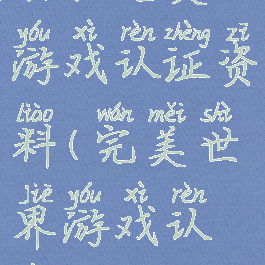 yóu xì rèn zhèng zī
游戏认证资
liào wán měi shì
料(完美世
jiè yóu xì rèn
界游戏认